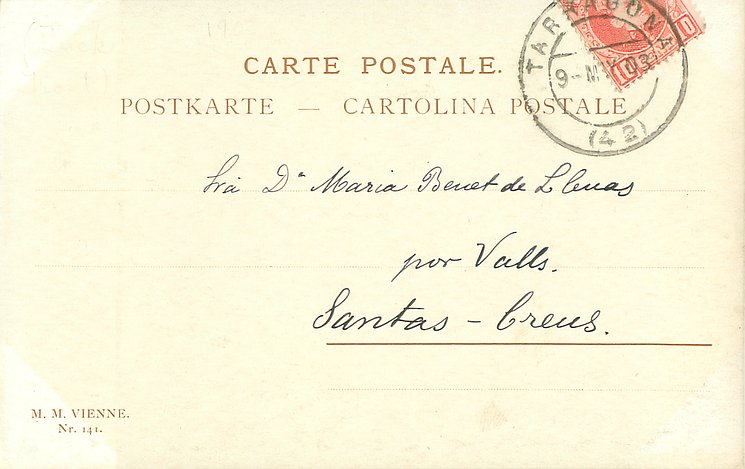 CARTE POSTALE.
POSTKARTE — CARTOLINA POSTALE
TARRAGONA
(42)
10
Sra Dª Maria Benet de Llenas
por Valls.
Santas - Creus.
M. M. VIENNE.
Nr. 141.